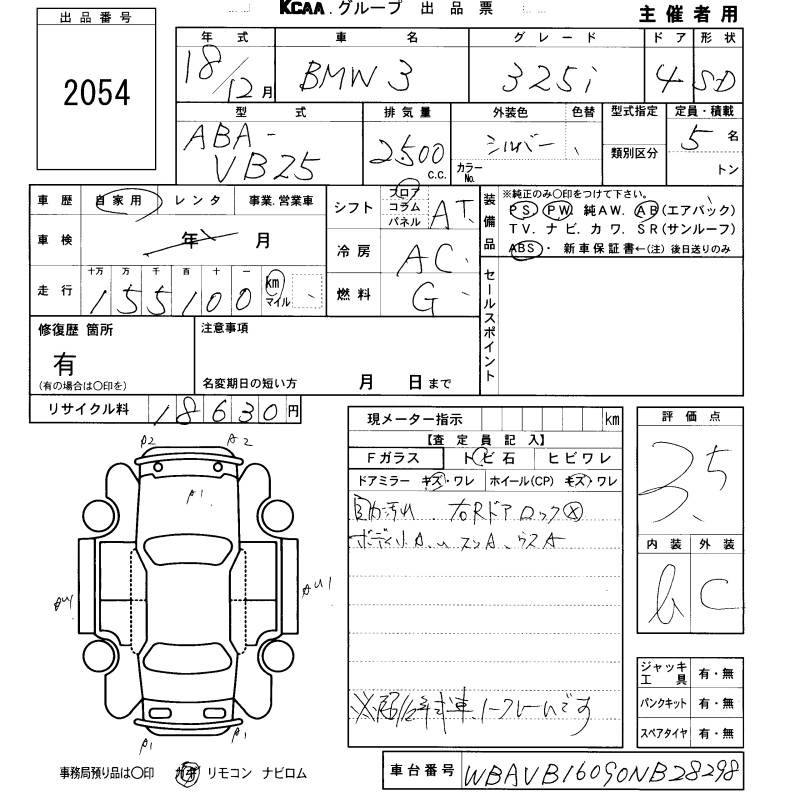 KCAA.グループ 出品票
主催者用
出品番号
2054
年式 車名 グレード ドア 形状
18/12月 BMW 3 325i 4 SD
型式 排気量 外装色 色替 型式指定 定員・積載
ABA-VB25 2500 c.c. シルバー 5名
カラーNo. 類別区分 トン
車歴 自家用 レンタ 事業.営業車
車検 年 月
走行 十万 万 千 百 十 一
155100 km マイル
シフト フロア コラム パネル AT
冷房 AC
燃料 G
装備品
※純正のみ〇印をつけて下さい。
PS PW 純AW. AB(エアバック)
TV. ナビ. カワ. SR(サンルーフ)
ABS・ 新車保証書←(注)後日送りのみ
セールスポイント
修復歴 箇所
有
(有の場合は〇印を)
注意事項
名変期日の短い方 月 日まで
リサイクル料 18630円
現メーター指示 km
【査定員記入】
Fガラス トビ石 ヒビワレ
ドアミラー キズ・ワレ ホイール(CP) キズ・ワレ
右Rドアロック
※ 年式車.
評価点
3.5
内装 外装
b C
ジャッキ工具 有・無
パンクキット 有・無
スペアタイヤ 有・無
A2 A2
A1
AU1
A1 A1
事務局預り品は〇印 カギ リモコン ナビロム
車台番号 WBAVB16090NB28298